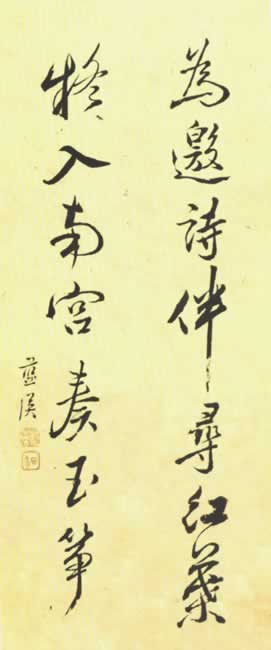 為邀詩伴尋紅葉
擬入南宮奏玉箏